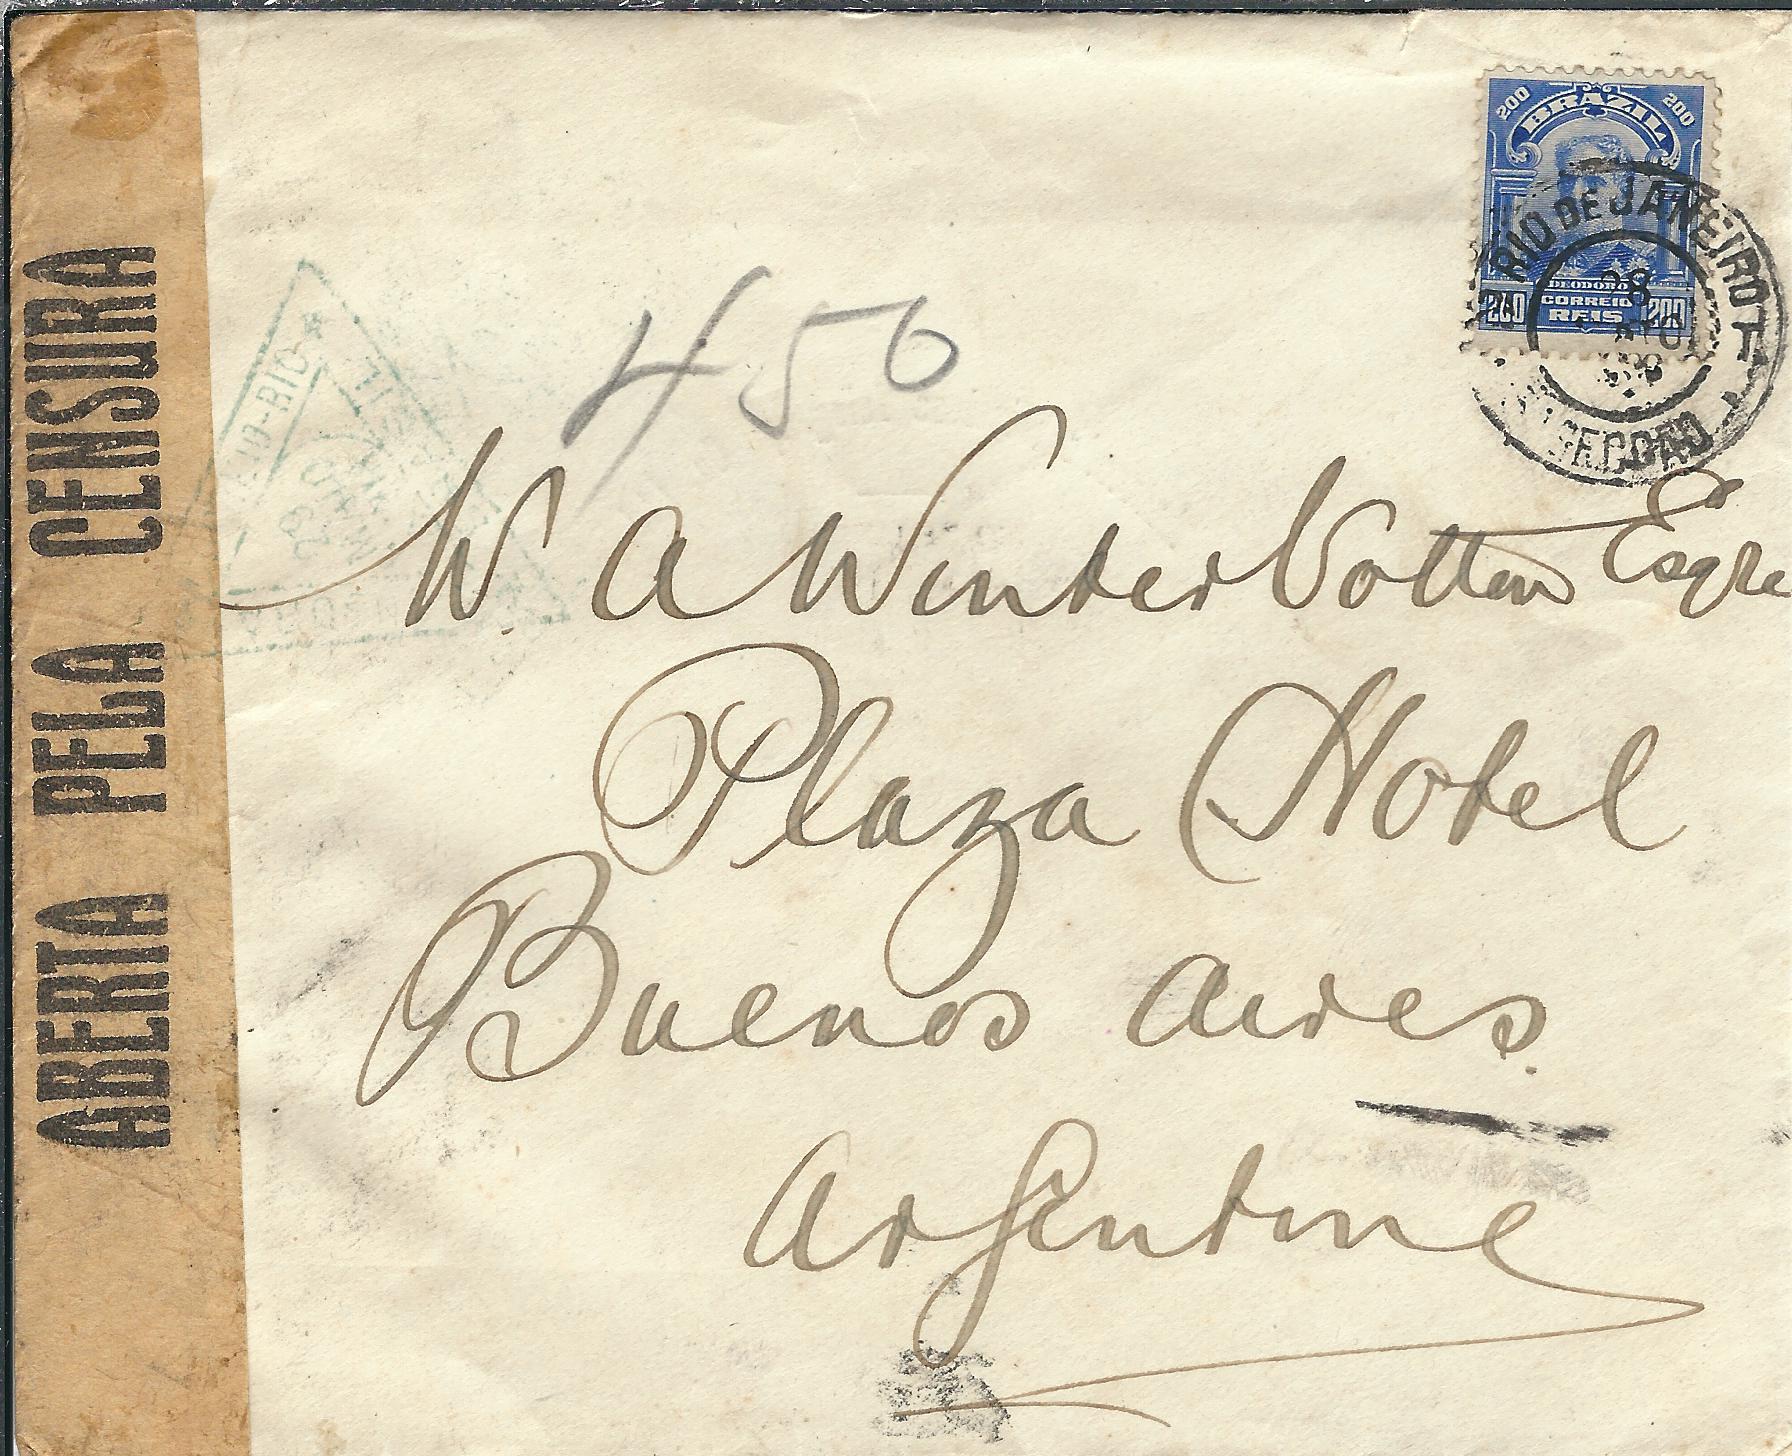 ABERTA PELA CENSURA
200 BRAZIL 200
DEODORO
200 CORREIO 200
REIS
RIO DE JANEIRO
28
450
RIO
W. A Winterbottom Esqre
Plaza Hotel
Buenos Aires.
Argentine